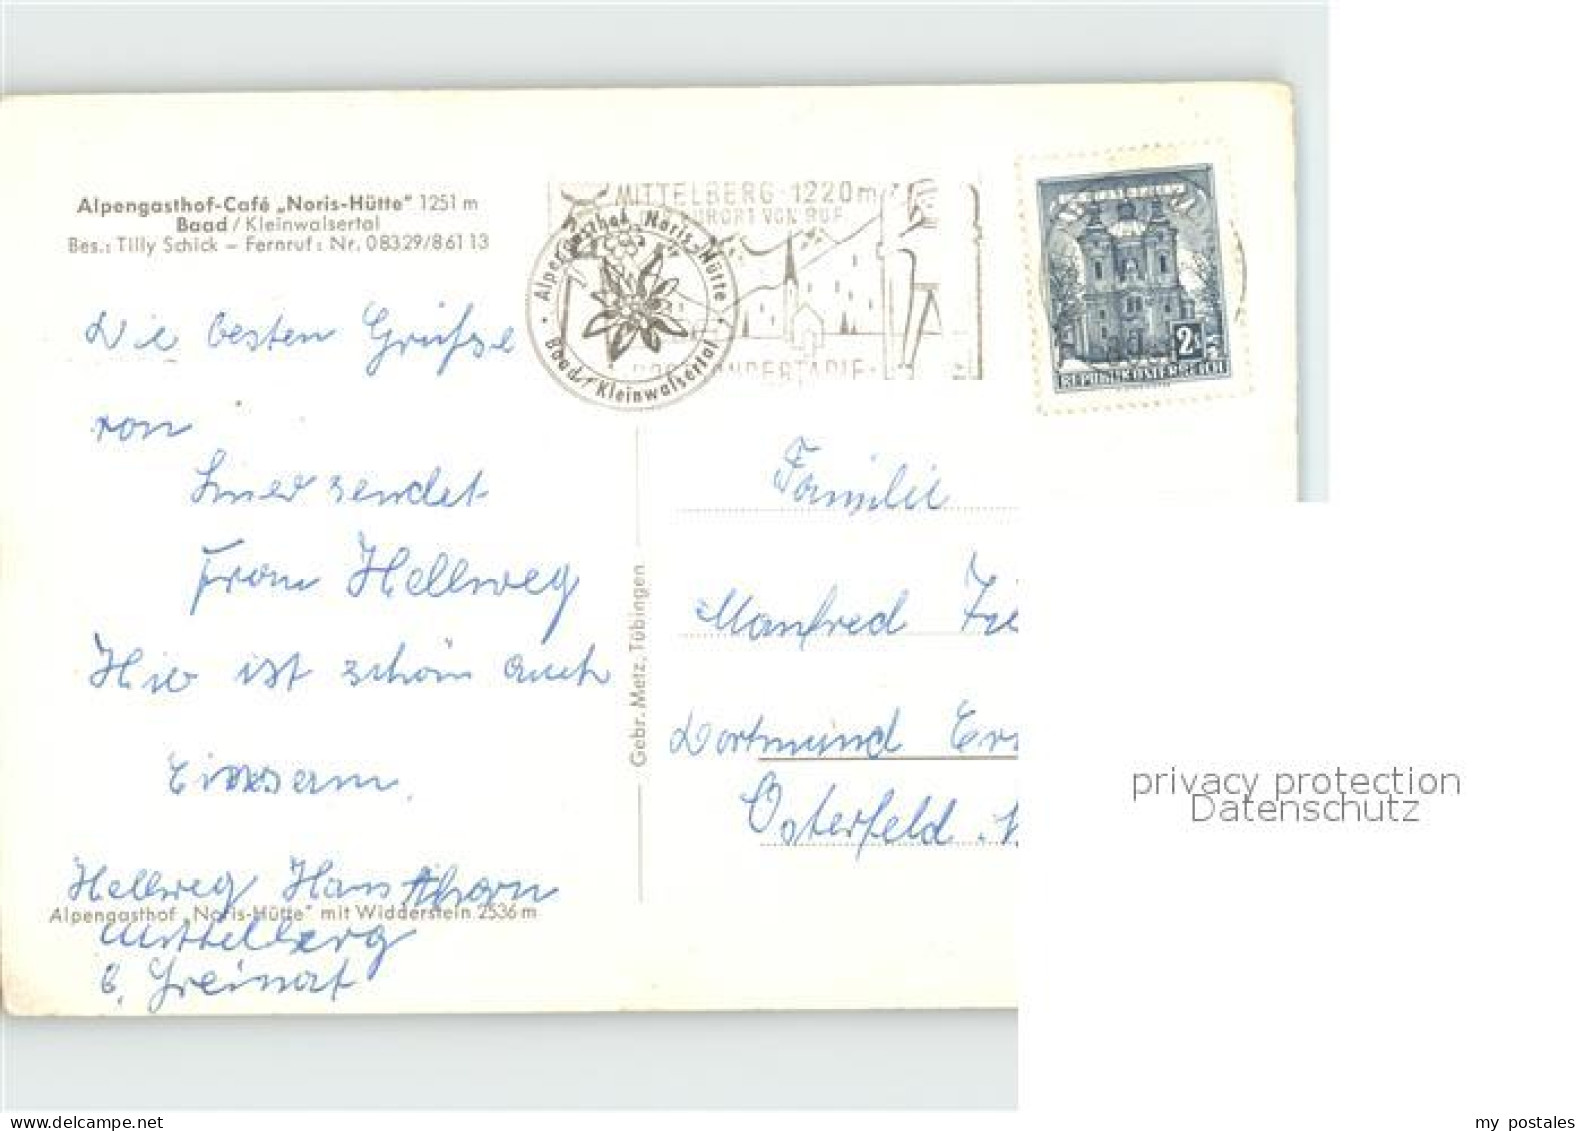 Alpengasthof-Café „Noris-Hütte" 1251 m
Baad / Kleinwalsertal
Bes.: Tilly Schick – Fernruf: Nr. 08329/86113
MITTELBERG · 1220 m
KURORT VON RUF
Alpengasthof Noris-Hütte
· Baad / Kleinwalsertal ·
2 S
REPUBLIK ÖSTERREICH
Die besten Grüsse
von
sendet
Frau Hellweg
Hier ist schön auch
Einsam.
Hellweg Hans
Alpengasthof „Noris-Hütte" mit Widderstein 2536 m
Mittelberg
b. Greinat
Gebr. Metz, Tübingen
Familie
Manfred
Dortmund
Osterfeld
privacy protection
Datenschutz
my postales